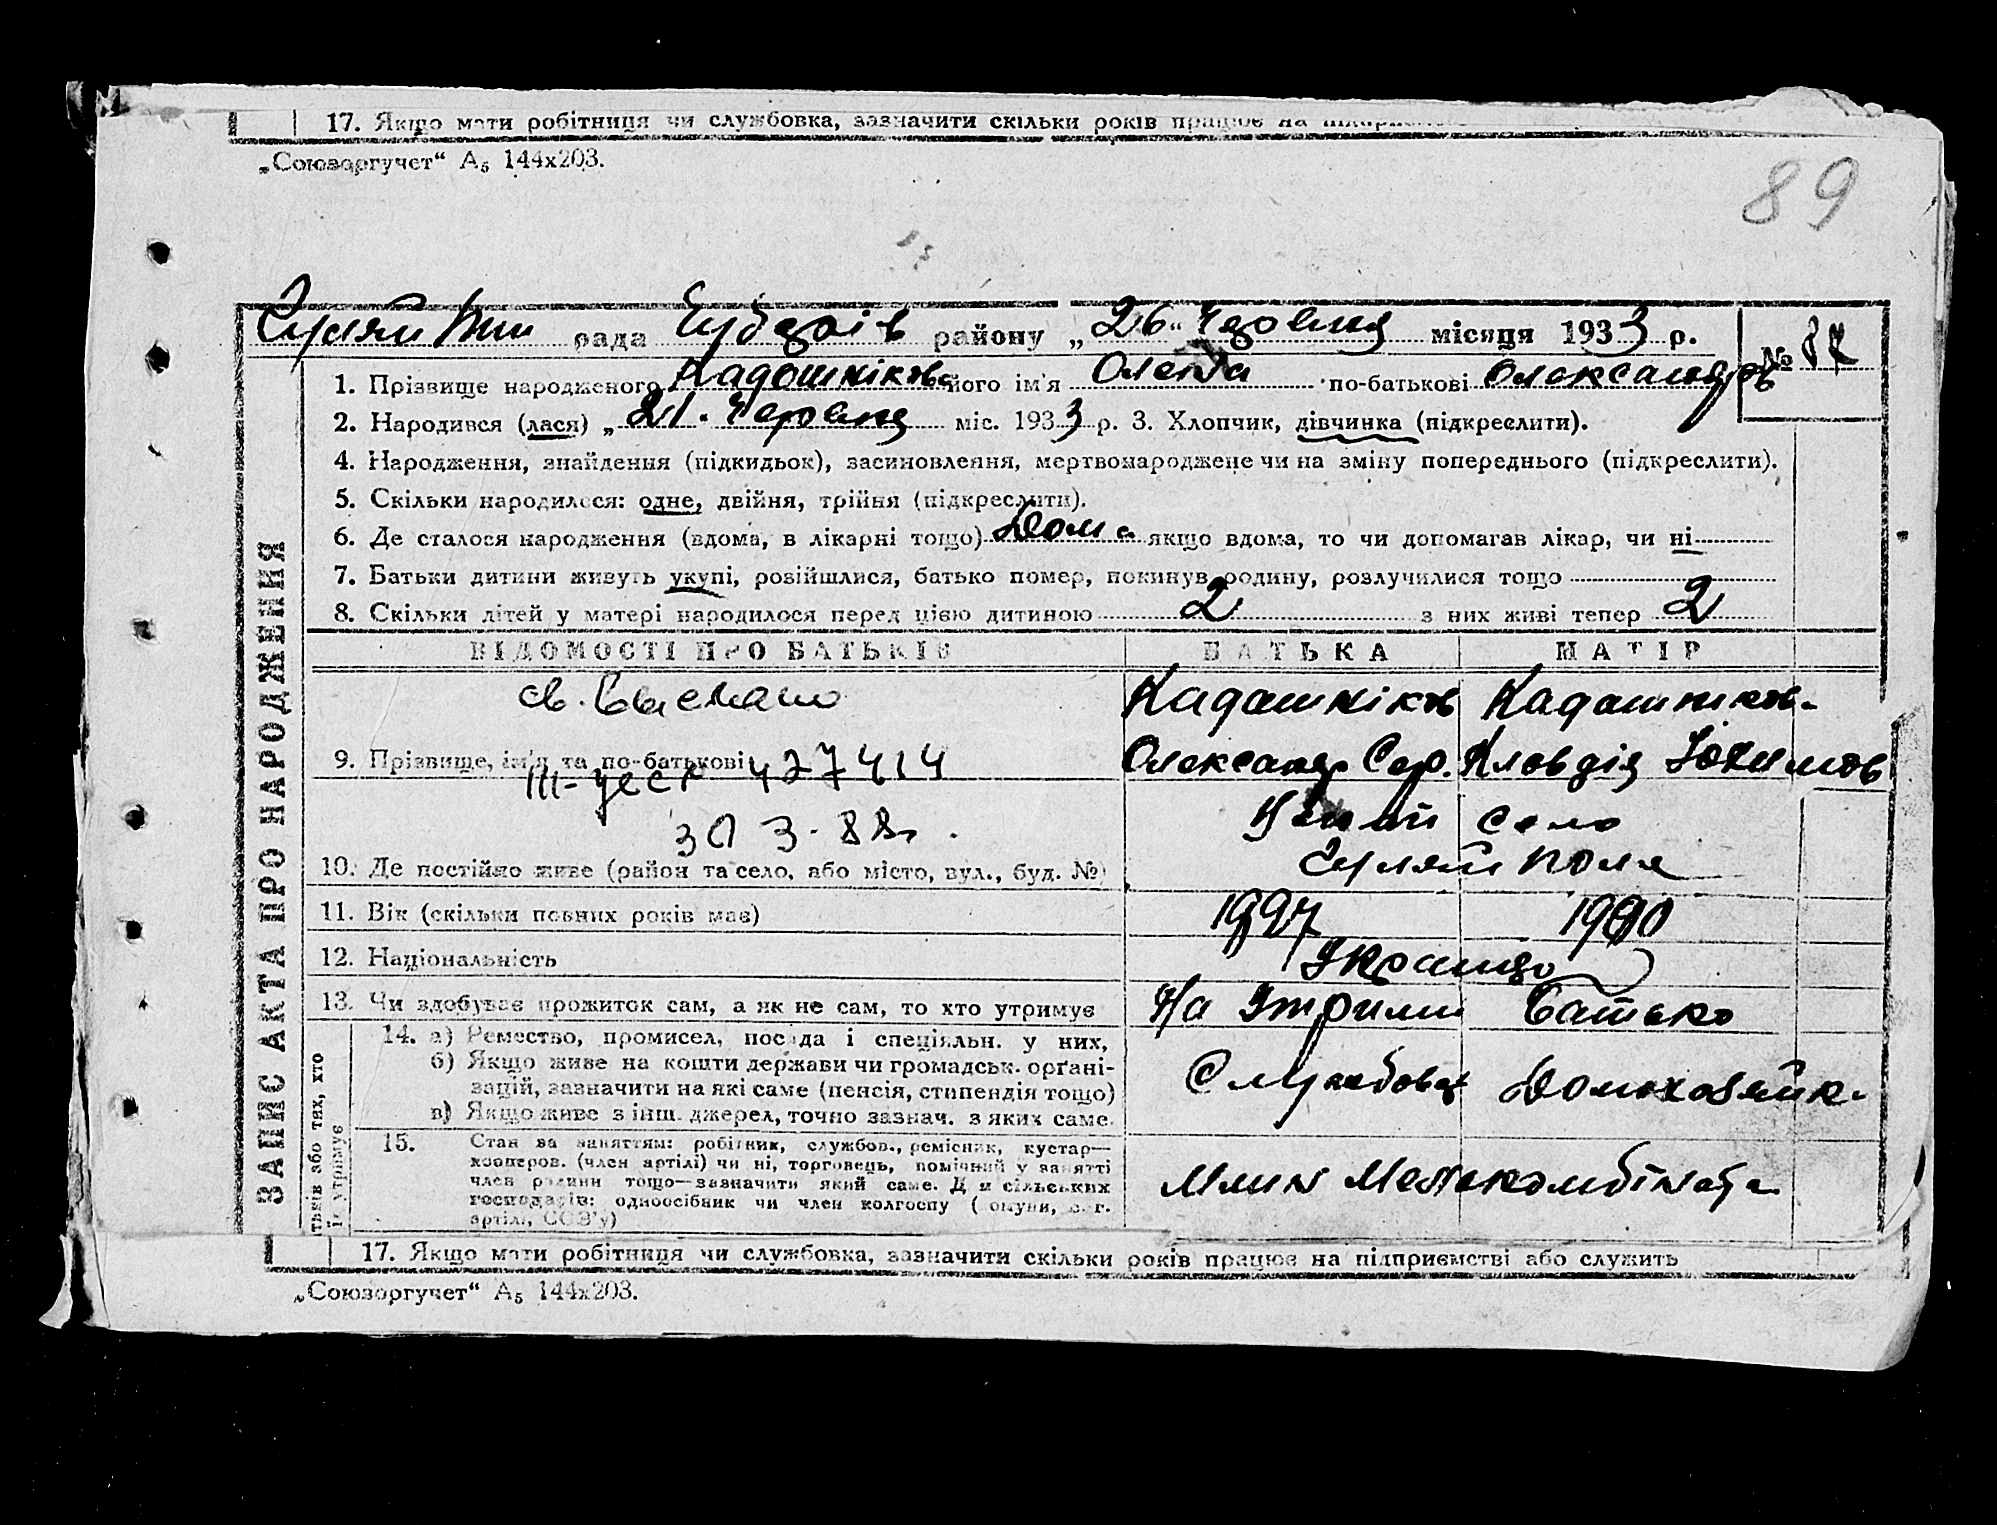 17. Якщо мати робітниця чи службовка, зазначити скільки років працює на
„Союзоргучет“ А5 144х203.
89
рада район­у „26“ Червня місяця 1933 р.
№ 87
1. Прізвище народженого Кадошнікова його ім'я Олена по-батькові Олександров
2. Народився (лася) „21. Червня міс. 1933 р. 3. Хлопчик, дівчинка (підкреслити).
4. Народження, знайдення (підкидьок), засиновлення, мертвонароджене чи на зміну попереднього (підкреслити).
5. Скільки народилося: одне, двійня, трійня (підкреслити).
6. Де сталося народження (вдома, в лікарні тощо) Дома якщо вдома, то чи допомагав лікар, чи ні
7. Батьки дитини живуть укупі, розійшлися, батько помер, покинув родину, розлучилися тощо
8. Скільки дітей у матері народилося перед цією дитиною 2 з них живі тепер 2
ЗАПИС АКТА ПРО НАРОДЖЕННЯ
ВІДОМОСТІ ПРО БАТЬКІВ БАТЬКА МАТІР
св. выслано Кадашніков Кадашніков
9. Прізвище, ім'я та по-батькові Олександр Сер. Кловдія Юхимов
427414
30 3-88г. село
Гуляй Поля
10. Де постійно живе (район та село, або місто, вул., буд. №)
11. Вік (скільки повних років має) 1907 1910
12. Національність Українці
13. Чи здобуває прожиток сам, а як не сам, то хто утримує На Утрим Батько
14. а) Ремество, промисел, посада і спеціяльн. у них,
б) Якщо живе на кошти держави чи громадськ. орґані-
зацій, зазначити на які саме (пенсія, стипендія тощо)
в) Якщо живе з інш. джерел, точно зазнач. з яких саме.
Службовец Домохозяйк
15. Стан за заняттям: робітник, службов., ремісник, кустар—
кооперов. (член артілі) чи ні, торговець, помічний у занятті
член родини тощо—зазначити який саме. Для сільських
господарів: одноосібник чи член колгоспу (комуни, с.-г.
артілі, СОЗ'у)
Млин Мелькомбіната
тьків або тих, хто
їх утримує
17. Якщо мати робітниця чи службовка, зазначити скільки років працює на підприємстві або служить
„Союзоргучет“ А5 144х203.